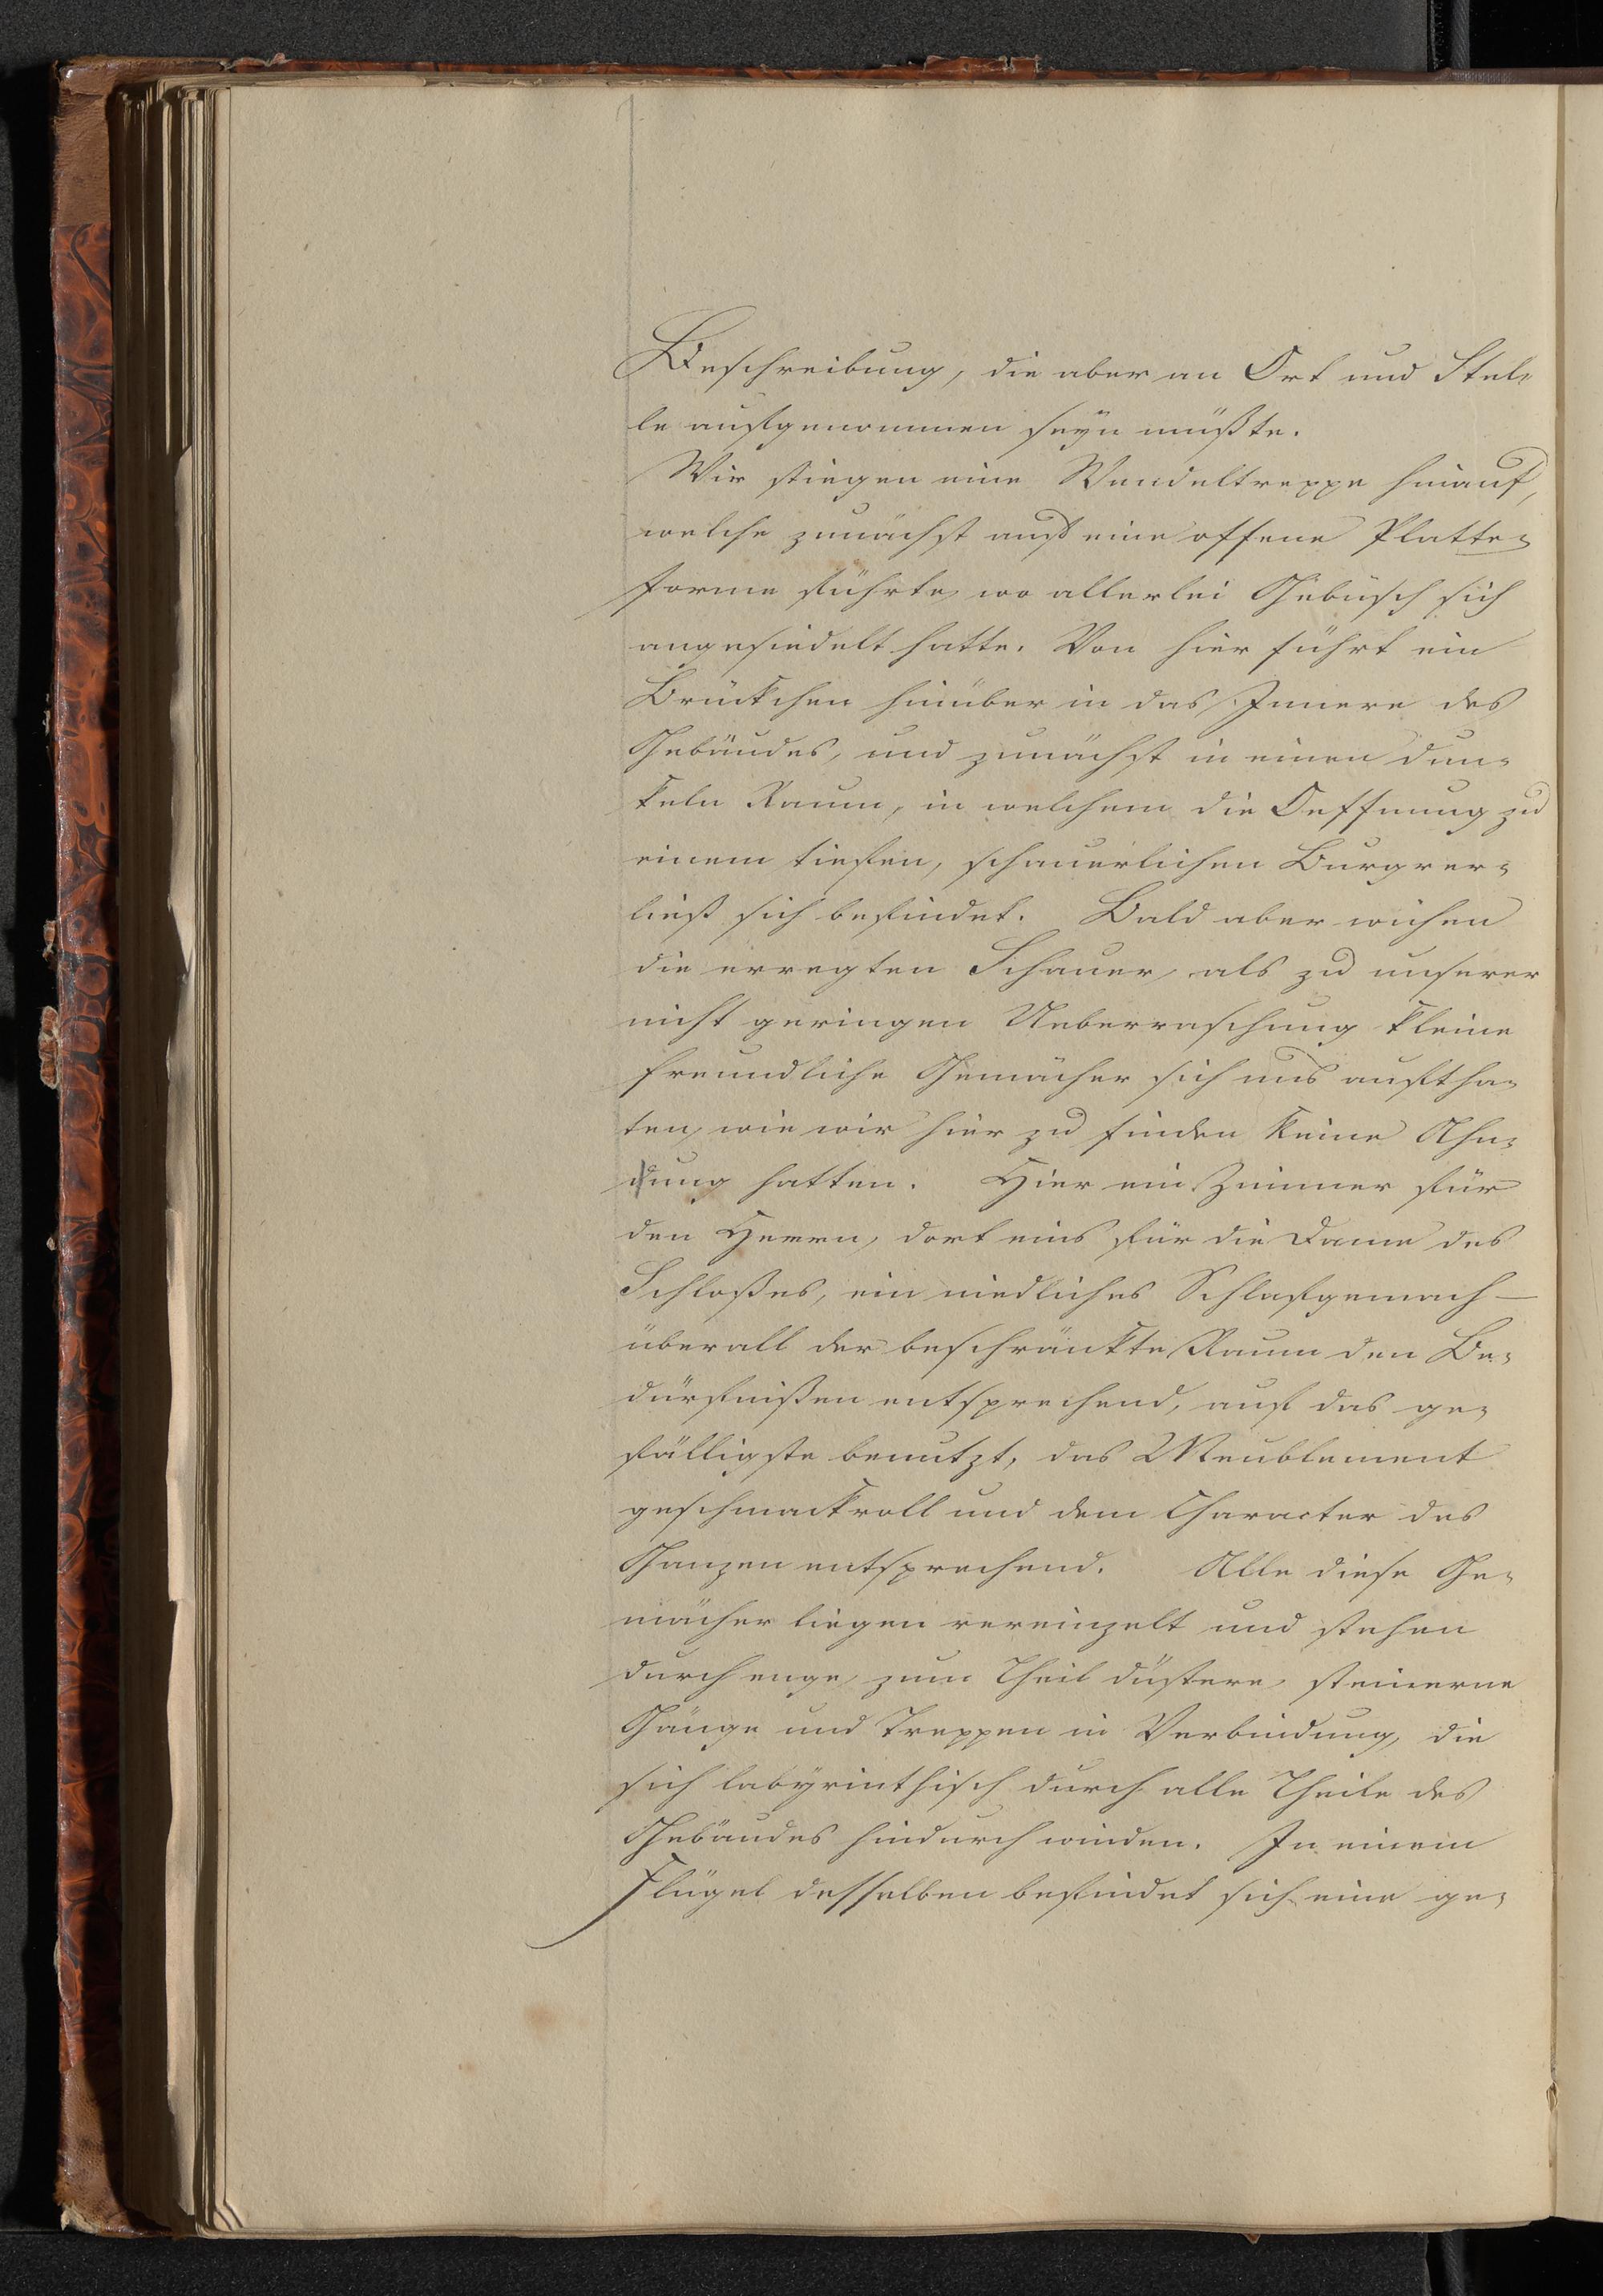 Beschreibung, die aber an Ort und Stel-
le aufgenommen seyn müßte.
Wir stiegen eine Wendeltreppe hinauf,
welche zunächst auf eine offene Platte-
forme führte, wo allerlei Gebüsch sich
angesiedelt hatte. Von hier führt ein
Brückchen hinüber in das Innere des
Gebäudes, und zunächst in einen dun-
keln Raum, in welchem die Oeffnung zu
einem tiefen, schauerlichen Burgver-
ließ sich befindet. Bald aber wichen
die erregten Schauer, als zu unserer
nicht geringen Ueberraschung kleine
freundliche Gemächer sich uns auftha-
ten, wie wir hier zu finden keine Ahn-
dung hatten. Hier ein Zimmer für
den Herrn, dort eins für die Dame des
Schloßes, ein niedliches Schlafgemach —
überall der beschränkte Raum den Be-
dürfnißen entsprechend, auf das ge-
fälligste benutzt, das Meublement
geschmackvoll und dem Character des
Ganzen entsprechend. Alle diese Ge-
mächer liegen vereinzelt und stehen
durch enge, zum Theil düstere, steinerne
Gänge und Treppen in Verbindung, die
sich labÿrinthisch durch alle Theile des
Gebäudes hindurch winden. In einem
Flügel desselben befindet sich eine ge-